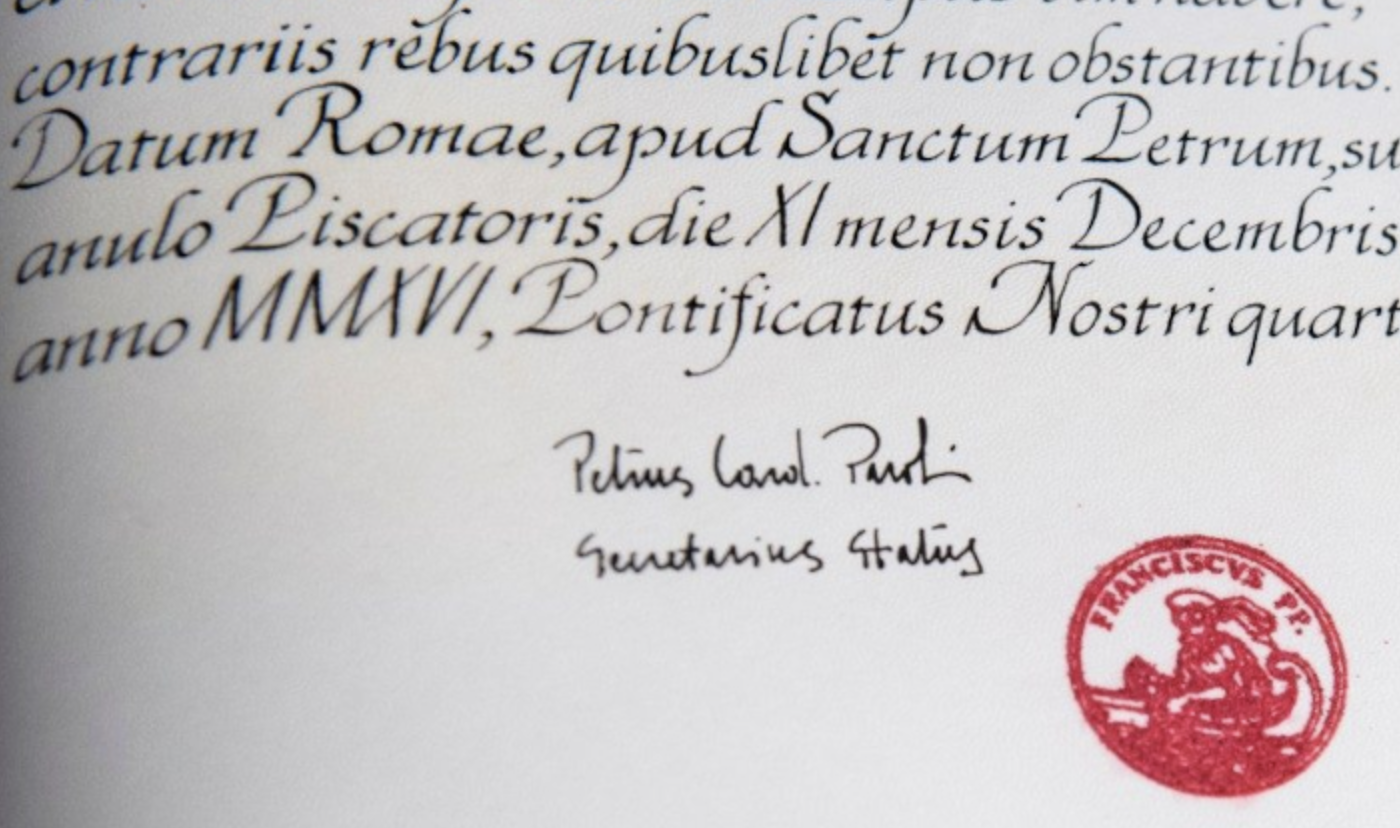 contrariis rĕbus quibuslibĕt non obstantibus.
Datum Romae, apud Sanctum Petrum, su
anulo Piscatoris, die XI mensis Decembris
anno MMXVI, Pontificatus Nostri quart
Petrus Card. Parolin
Secretarius Status
FRANCISCVS PP.